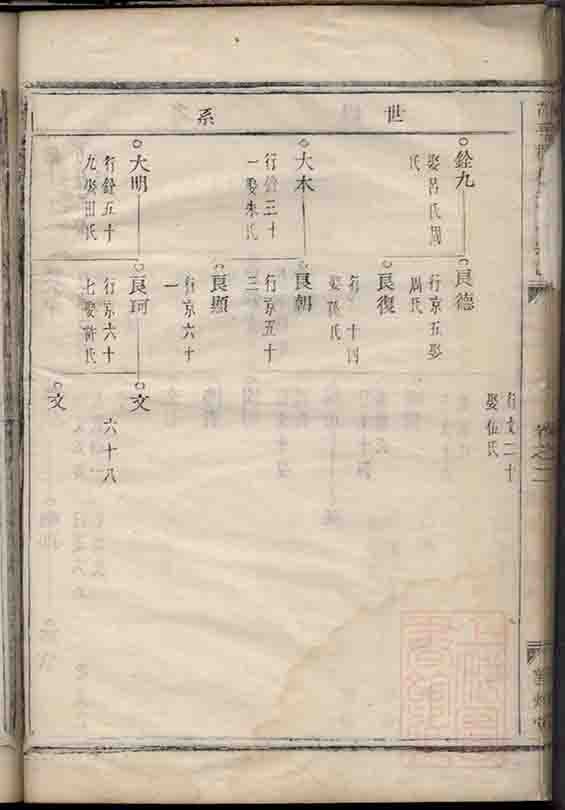 世系
行文二十
娶伍氏
銓九
娶呂氏周
氏
良德
行京五娶
周氏
良復
行京十四
娶孫氏
大本
行銓三十
一娶朱氏
良朝
行京五十
三
良顯
行京六十
一
大明
行銓五十
九娶田氏
良珂
行京六十
七娶許氏
文
六十八
文
卷之二
上海圖書館藏